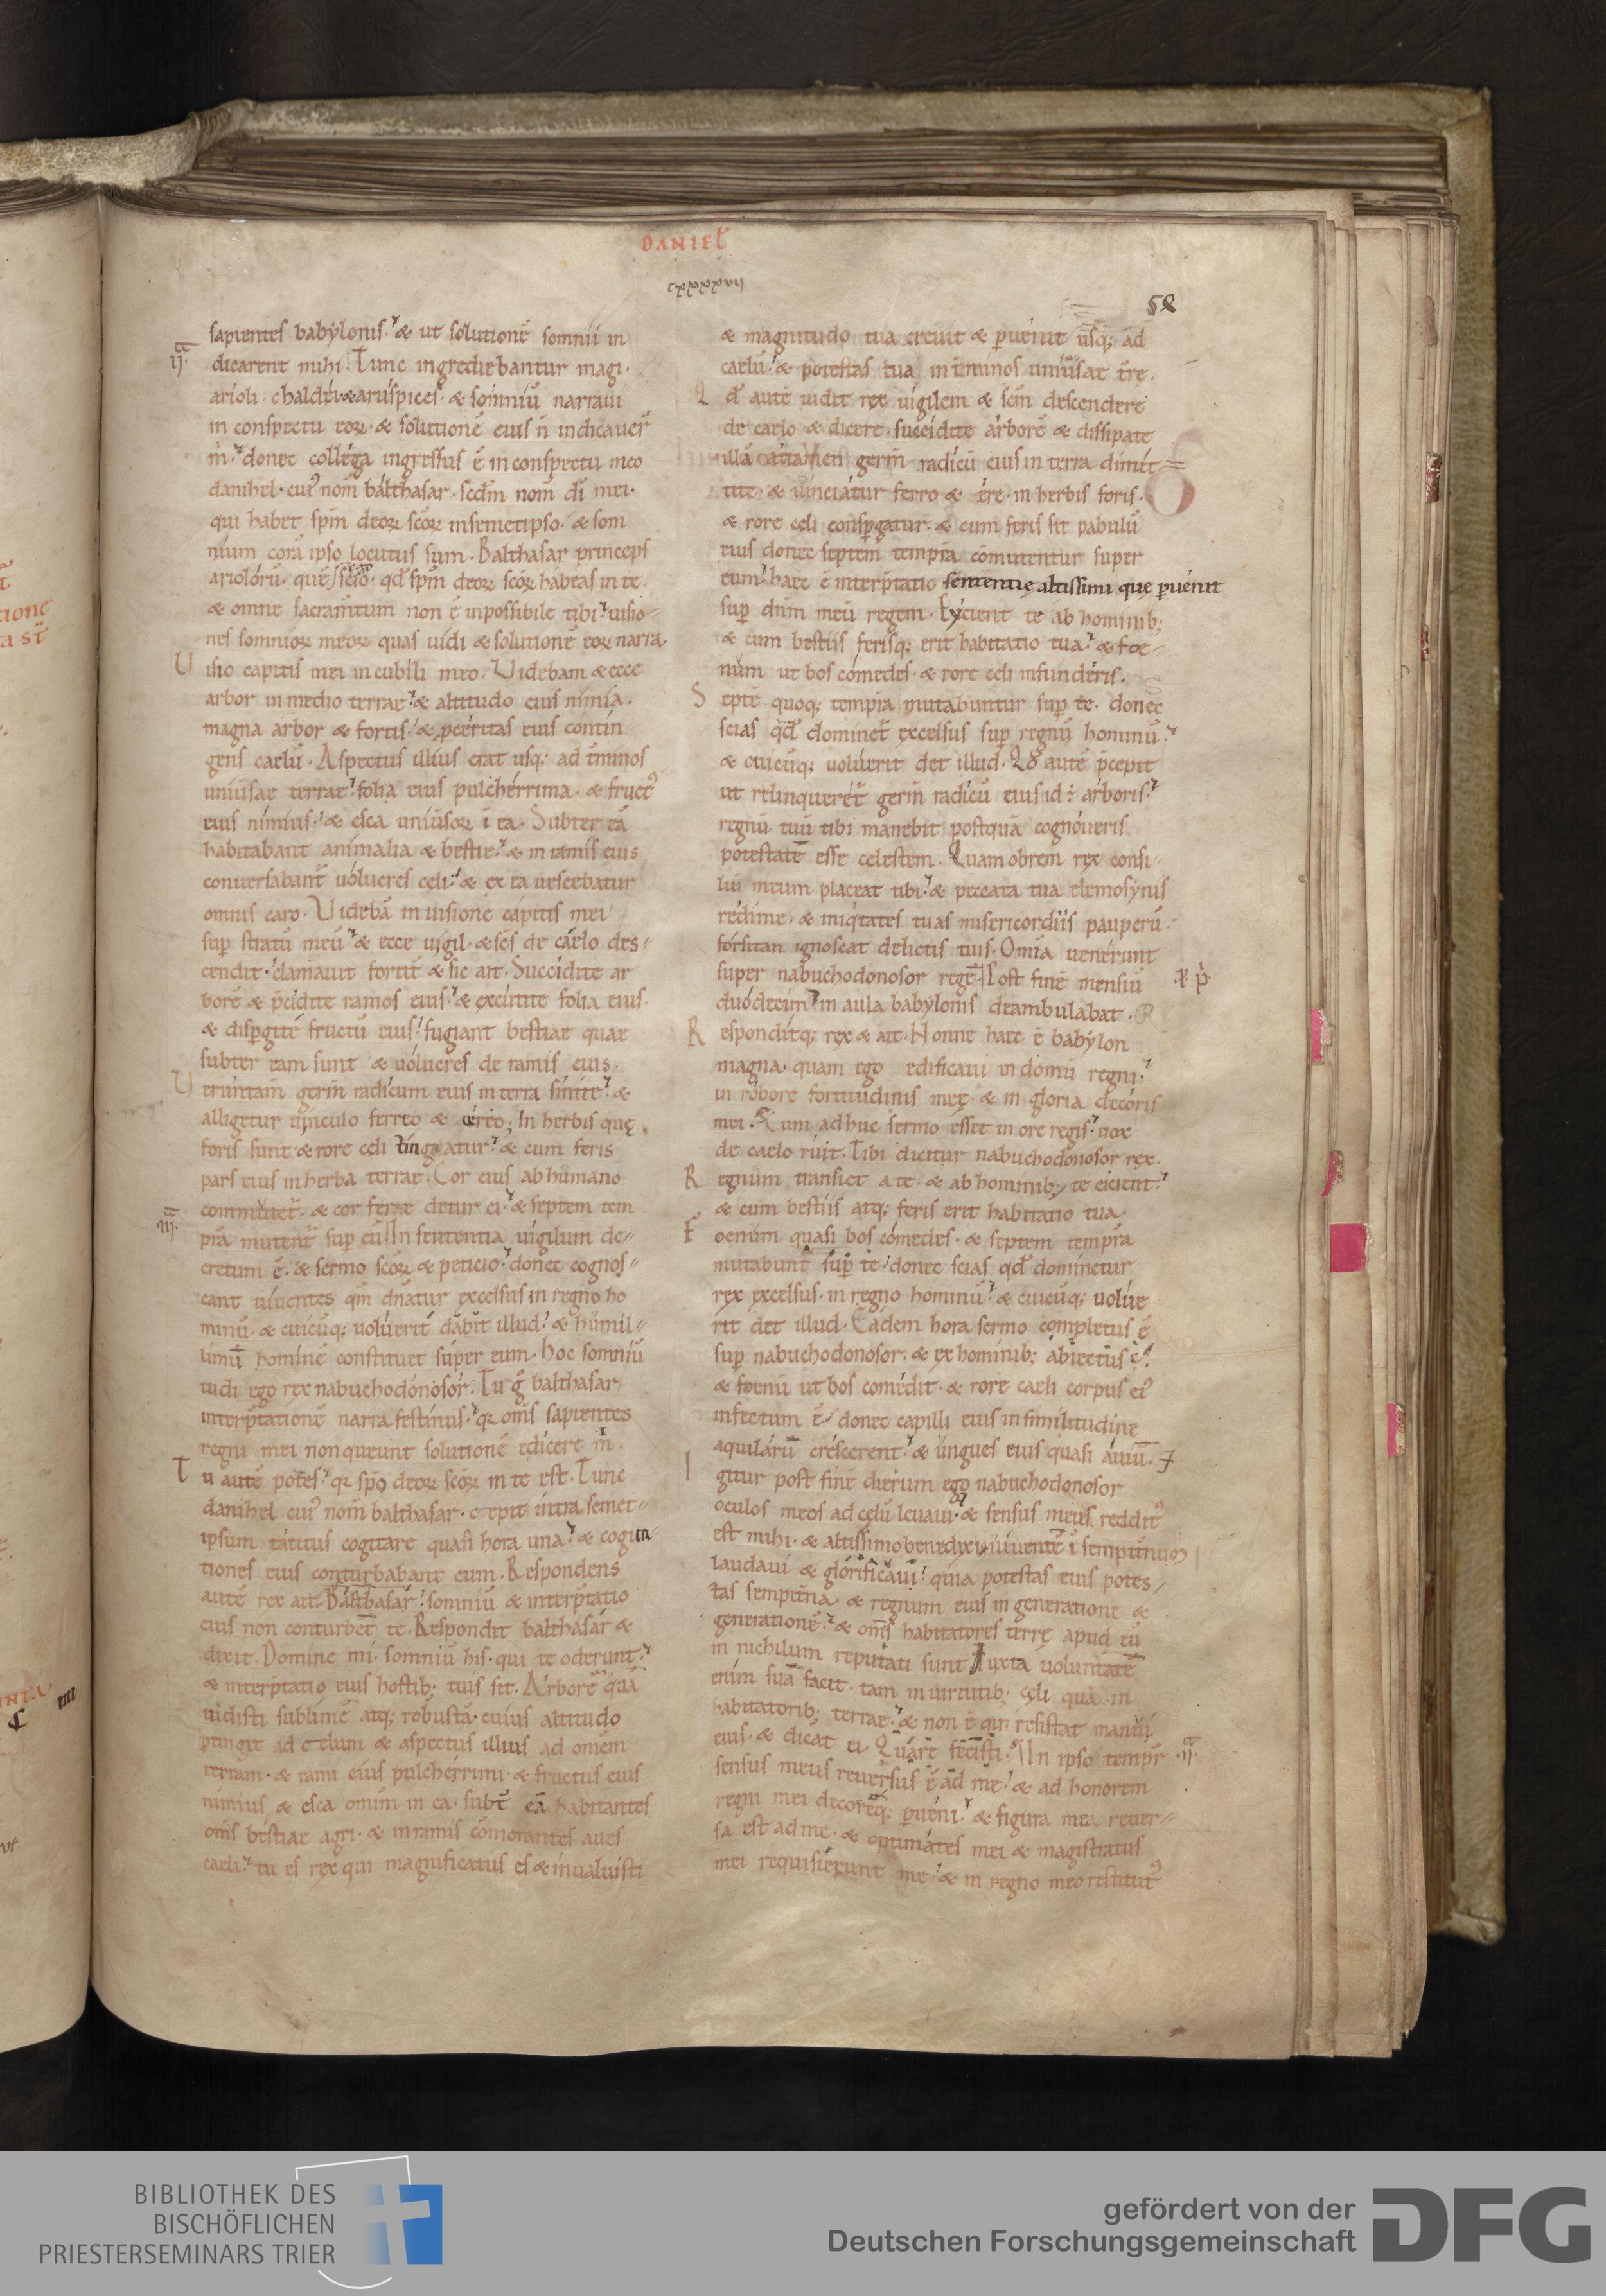 DANIEL
cxxxxvii
58
sapientes babylonis. & ut solutionē somnii in
dicarent mihi. Tunc ingrediebantur magi.
arioli. chaldei & aruspices. & somniū narraui
in conspectu eoꝝ. & solutionē eius ñ indicauer̄
m̄. donec collega ingressus ē in conspectu meo
danihel. cui᾽ nom̄ balthasar. scdm̄ nom̄ di mei.
qui habet sp̄m deoꝝ scōꝝ in semetipso. & som
nium corā ipso locutus sum. Balthasar princeps
arioloru. quē scio qd̄ sp̄m deoꝝ scōꝝ habeas in te.
& omne sacram̄tum non ē inpossibile tibi. uisio-
nes somnioꝝ meoꝝ quas uidi & solutionē eoꝝ narra.
Uisio capitis mei in cubili meo. Uidebam & ecce
arbor in medio terrae. & altitudo eius nimia.
magna arbor & fortis. & pceritas eius contin
gens caelū. Aspectus illius erat usq; ad t̄minos
uniūsae terrae. folia eius pulcherrima. & fruct᾽
eius nimius. & esca uniūsoꝝ ī ea. Subter eā
habitabant animalia & bestie. & in ramis eius
conuersabant̄ uolucres celi. & ex ea uescebatur
omnis caro. Uidebā in uisione capitis mei
sup stratū meū. & ecce uigil. & scs de caelo des-
cendit. clamauit fortit̄ & sic ait. Succidite ar
borē & p̄cidite ramos eius. & excutite folia eius.
& disp̱gite fructū eius. fugiant bestiae quae
subter eam sunt & uolucres de ramis eius.
Ueruntam̄ germ̄ radicum eius in terra sinite. &
alligetur uinculo ferreo & ereo; In herbis quę
foris sunt & rore celi tinguatur. & cum feris
pars eius in herba terrae. Cor eius ab humano
commutet̄. & cor ferae detur ei. & septem tem
pra mutent̄ sup eū. In sententia uigilum de-
cretum ē. & sermo scōꝝ & peticio. donec cognos-
cant uiuentes qm̄ dn̄atur excelsus in regno ho
minū. & cuicūq; uoluerit dabit illud. & humil-
limū hominē constituet super eum. Hoc somniū
uidi ego rex nabuchodonosor. Tu g̊ balthasar
interp̄tationē narra festinus. qr om̄s sapientes
regni mei non queunt solutionē edicere m̄.
Tu autē potes. qr sp̄s deoꝝ scōꝝ in te est. Tunc
danihel cui᾽ nom̄ balthasar. cepit intra semet-
ipsum tacitus cogitare quasi hora una. & cogita-
tiones eius conturbabant eum. Respondens
autē rex ait. Balthasar. somniū & interp̄tatio
eius non conturbet te. Respondit balthasar &
dixit. Domine mi. somniū his. qui te oderunt.
& interp̄tatio eius hostib; tuis sit. Arborē quā
uidisti sublimē atq; robustā. cuius altitudo
ptingit ad celum & aspectus illius ad omēm
terram. & rami eius pulcherrimi & fructus eius
nimius & esca omīm in ea. subt̄ eā habitantes
om̄s bestiae agri. & in ramis comorantes aues
caeli. tu es rex qui magnificatus es & inualuisti
& magnitudo tua creuit & puenit usq; ad
caelū. & potestas tua in t̄minos uniūsae t̄re.
Qd̄ autē uidit rex uigilem & scm̄ descendere
de caelo & dicere. succidite arborē & dissipate
illā attamen germ̄ radicū eius in terra dimit-
tite. & uinciatur ferro & ere. in herbis foris.
& rore celi conspgatur. & cum feris sit pabulū
eius donec septem tempra cōmutentur super
eum. haec ē interp̄tatio sententię altissimi que puenit
sup dnm̄ meū regem. Eycient te ab hominib;
& cum bestiis ferisq; erit habitatio tua. & foe-
num ut bos comedes. & rore celi infunderis.
Septē quoq; tempra mutabuntur sup te. donec
scias qd̄ dominet̄ excelsus sup regnū hominū.
& cuicūq; uoluerit det illud. Qd̄ autē p̄cepit
ut relinqueret̄ germ̄ radicū eius id ē arboris.
regnū tuū tibi manebit postquā cognoueris
potestatē esse celestem. Quam obrem rex consi-
liu meum placeat tibi. & peccata tua elemosynis
redime. & iniqtates tuas misericordiis pauperū.
forsitan ignoscat delictis tuis. Omīa uenerunt
super nabuchodonosor regē. Post finē mensiū
duodecim. in aula babylonis deambulabat.
Responditq; rex & ait. Nonne haec ē babylon
magna. quam ego edificaui in domū regni.
in robore fortitudinis meę. & in gloria decoris
mei. Cum adhuc sermo esset in ore regis. uox
de caelo ruit. Tibi dicitur nabuchodonosor rex.
Regnum transiet a te. & ab hominib; te eicient.
& cum bestiis atq; feris erit habitatio tua.
Foenum quasi bos comedes. & septem tempra
mutabunt̄ sup te. donec scias qd̄ dominetur
rex excelsus. in regno hominū. & cuicūq; uolue
rit det illud. Eadem hora sermo completus ē
sup nabuchodonosor. & ex hominib; abiectus ē.
& foenū ut bos comedit. & rore caeli corpus ei᾽
infectum ē. donec capilli eius in similitudine
aquilarū crescerent. & ungues eius quasi auiū.
Igitur post finē dierum ego nabuchodonosor
oculos meos ad cęlū leuaui. & sensus meus reddit᾽
est mihi. & altissimo benedixi. uiuentē ī sempit̄nū
laudaui & glorificaui. quia potestas eius potes-
tas sempit̄na. & regnum eius in generatione &
generationē. & om̄s habitatores terrę apud eū
in nichilum reputati sunt. Iuxta uoluntatē
enim suā facit. tam in uirtutib; cęli quā in
habitatorib; terrae. & non ē qui resistat manui
eius. & dicat ei. Quare fecisti. In ipso tempr̄
sensus meus reuersus ē ad me. & ad honorem
regni mei decorēq; pueni. & figura mea reuer-
sa est ad me. & optimates mei & magistratus
mei requisierunt me. & in regno meo restitut᾽
BIBLIOTHEK DES
BISCHÖFLICHEN
PRIESTERSEMINARS TRIER
gefördert von der
Deutschen Forschungsgemeinschaft
DFG